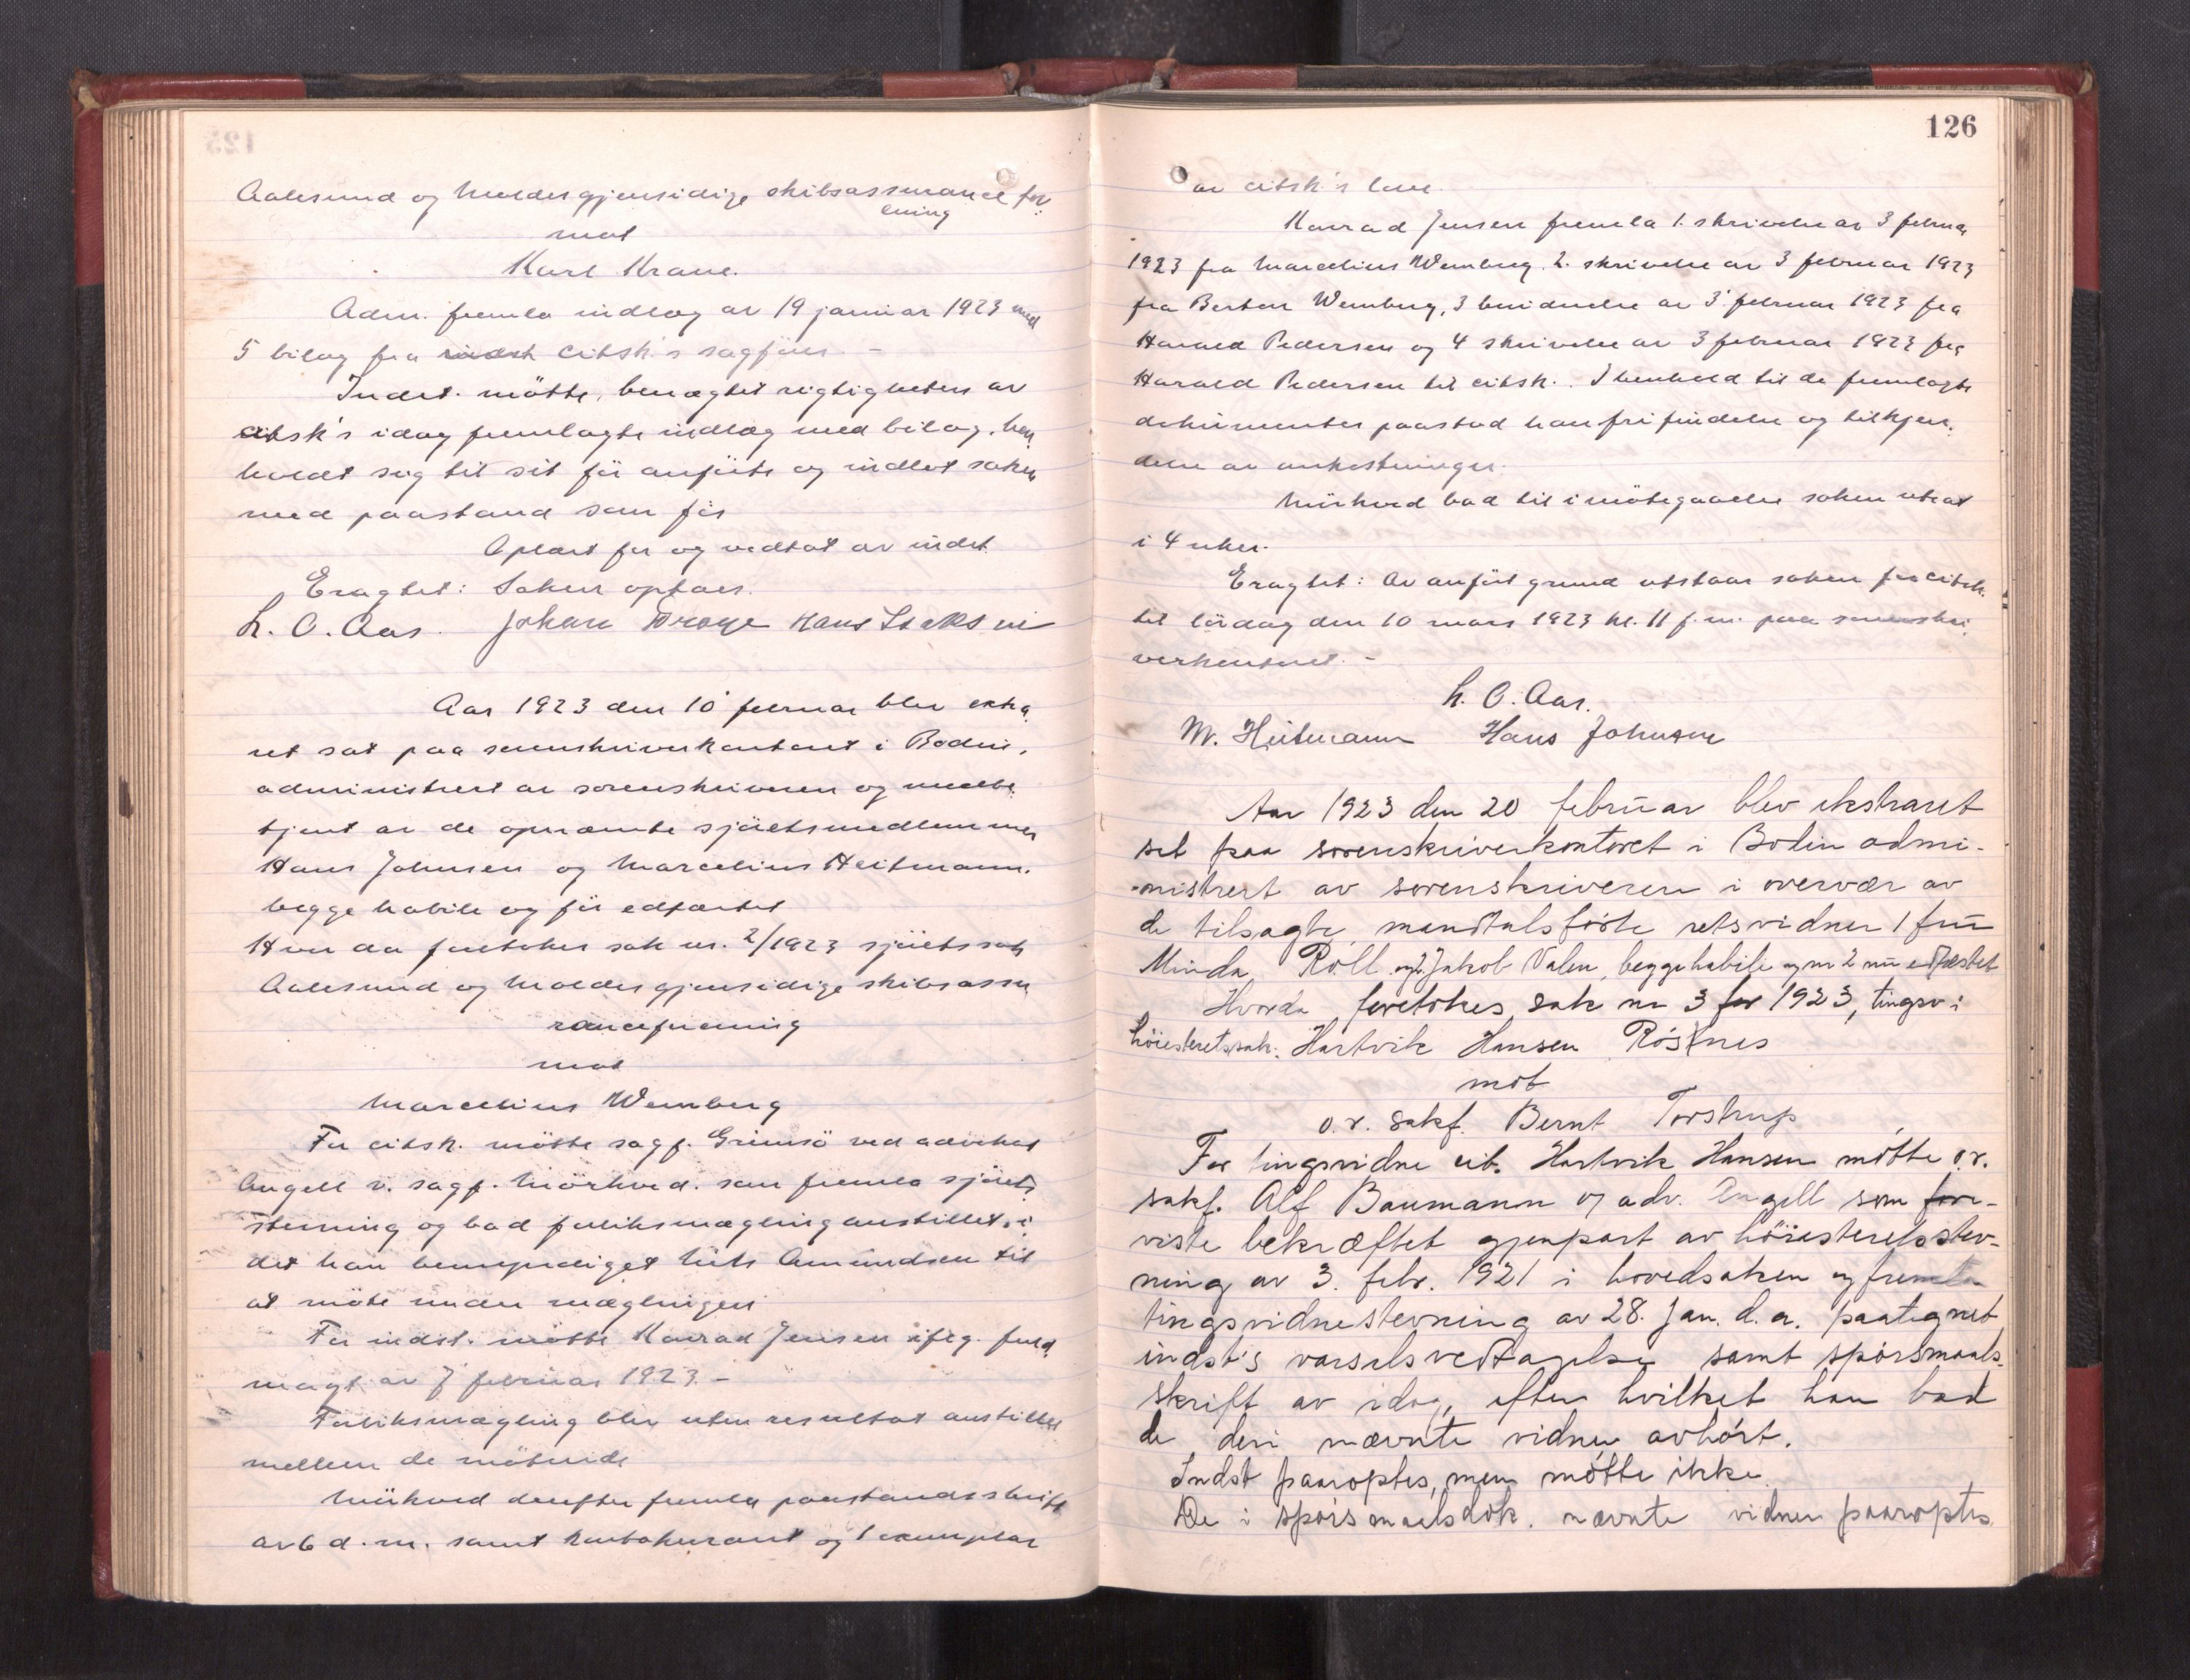 Aalesund og Moldes gjensidige skibsassurancefor
ening
mot
Karl Krane.
Adm. fremla indlæg av 19 januar 1923 med
5 bilag fra citsk's sagfører –
Indst. møtte, benægtet rigtigheten av
citsk's idag fremlagte indlæg med bilag, hen
holdt sig til sit før anførte og indlot saken
med paastand som før
Oplæst for og vedtat av indst.
Eragtet: Saken optaes.
L. O. Aas. Johan Hans Isaksen
Aar 1923 den 10 februar blev ekstra
ret sat paa sorenskriverkontoret i Bodin,
administrert av sorenskriveren og medbe
tjent av de opnævnte sjøretsmedlemmer
Hans Johnsen og Marcelius Heitmann.
begge habile og før edfæstet
Hvor da foretokes sak nr. 2/1923 sjøretssak
Aalesund og Moldes gjensidige skibsassu
ranceforening
mot
Marcelius Wemberg
For citsk. møtte sagf. Grimsø ved advokat
Angell v. sagf. Mørkved. som fremla sjørets
stevning og bad forliksmægling anstillet, i
det han bemyndiget Nils Amundsen til
at møte under mæglingen
For indst. møtte Konrad Jensen ifølg. fuld
magt av 7 februar 1923 –
Forliksmægling blev uten resultat anstillet
mellem de møtende
Mørkved derefter fremla paastandsskrift
av 6 d.m. samt kontokurant og 1 exemplar
126
av citsk's love.
Konrad Jensen fremla 1. skrivelse av 3 februar
1923 fra Marcelius Wemberg. 2. skrivelse av 3 februar 1923
fra Wemberg, 3 bevidnelse av 3 februar 1923 fra
Harald Pedersen og 4 skrivelse av 3 februar 1923 fra
Harald Pedersen til citsk. I henhold til de fremlagte
dokumenter paastod han frifindelse og tilkjen
delse av omkostninger.
Mørkved bad til imøtegaaelse saken utsat
i 4 uker.
Eragtet: Av anført grund utstaar saken for citsk.
til lørdag den 10 mars 1923 kl. 11 f.m. paa sorenskri
verkontoret. –
L. O. Aas.
M. Heitmann Hans Johnsen
Aar 1923 den 20 februar blev ekstraret
sat paa sorenskriverkontoret i Bodin admi-
nistrert av sorenskriveren i overvær av
de tilsagte, mandtalsførte retsvidner 1 fru
Minda Roll og 2 Jakob Valen, begge habile og nr 2 nu edfæstet
Hvorda foretokes sak nr 3 for 1923, tingsv i
høiesteretssak: Hartvik Hansen Røsnes
mot
o.r. sakf. Bernt Torstrup
For tingsvidne cit. Hartvik Hansen møtte o.r.
sakf. Alf Baumann og adv. Angell som fore-
viste bekræftet gjenpart av høiesteretsstev-
ning av 3. febr. 1921 i hovedsaken og fremla
tingsvidnestevning av 28. jan. d.a. paategnet
indst's varselsvedtagelse samt spørsmaals-
skrift av idag, efter hvilket han bad
de deri nævnte vidner avhørt.
Indst paaroptes, men møtte ikke.
De i spørsmaalsdok. nævnte vidner paaroptes